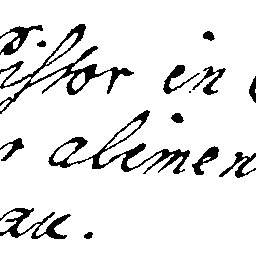 Pistor in
r alimen
au.